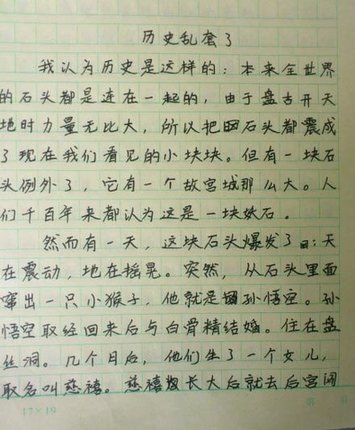 历史乱套了
我认为历史是这样的：本来全世界
的石头都是连在一起的，由于盘古开天
地时力量无比大，所以把石头都震成
了现在我们看见的小块块。但有一块石
头例外了，它有一个故宫城那么大。人
们千百年来都认为这是一块妖石。
然而有一天，这块石头爆发了：天
在震动，地在摇晃。突然，从石头里面
窜出一只小猴子，他就是孙悟空。孙
悟空取经回来后与白骨精结婚。住在盘
丝洞。几个月后，他们生了一个女儿，
取名叫慈禧。慈禧长大后就去后宫闹
17×19